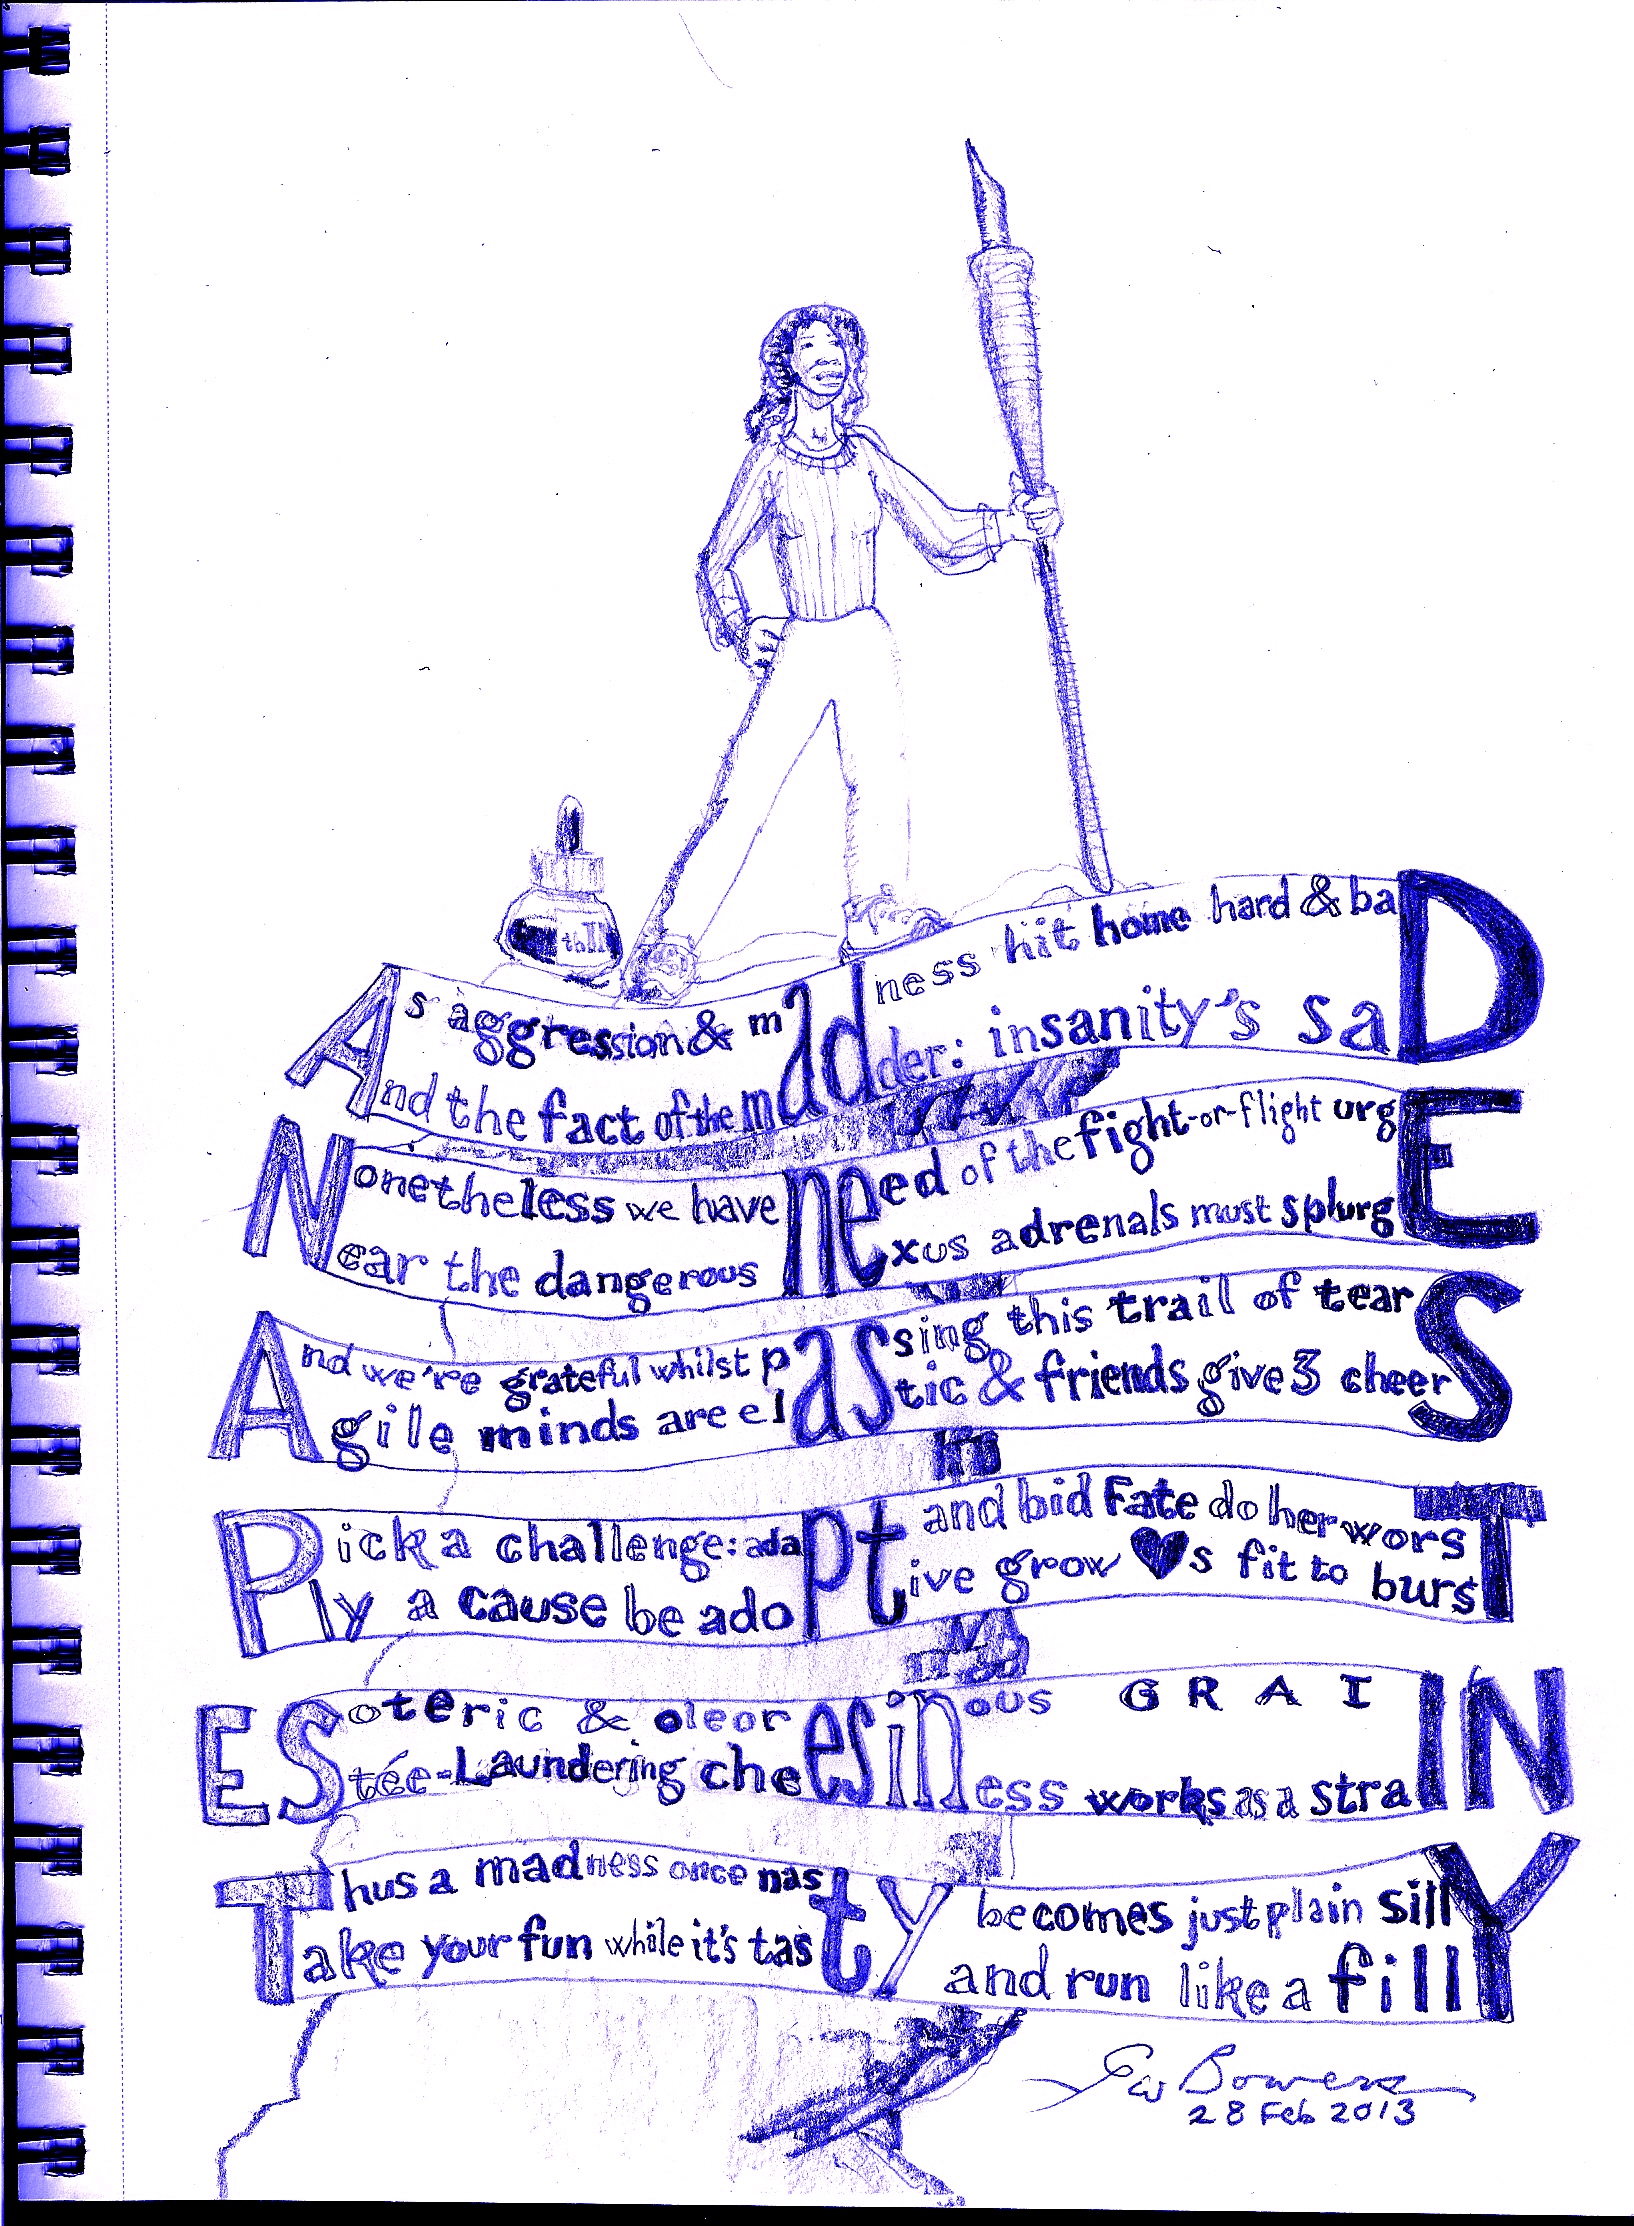 As aggression & madness hit home hard & baD
And the fact of the madder: insanity's saD
Nonetheless we have need of the fight-or-flight urgE
Near the dangerous nexus adrenals must splurgE
And we're grateful whilst passing this trail of tearS
Agile minds are elastic & friends give 3 cheerS
Pick a challenge: adaPt and bid Fate do her worsT
Ply a cause be adoPtive grow ♥s fit to bursT
ESoteric & oleoresinous GRAIN
EStée-Laundering cheesiness works as a straIN
Thus a madness once nasty becomes just plain sillY
Take your fun while it's tasty and run like a fillY
GW Bowers
28 Feb 2013